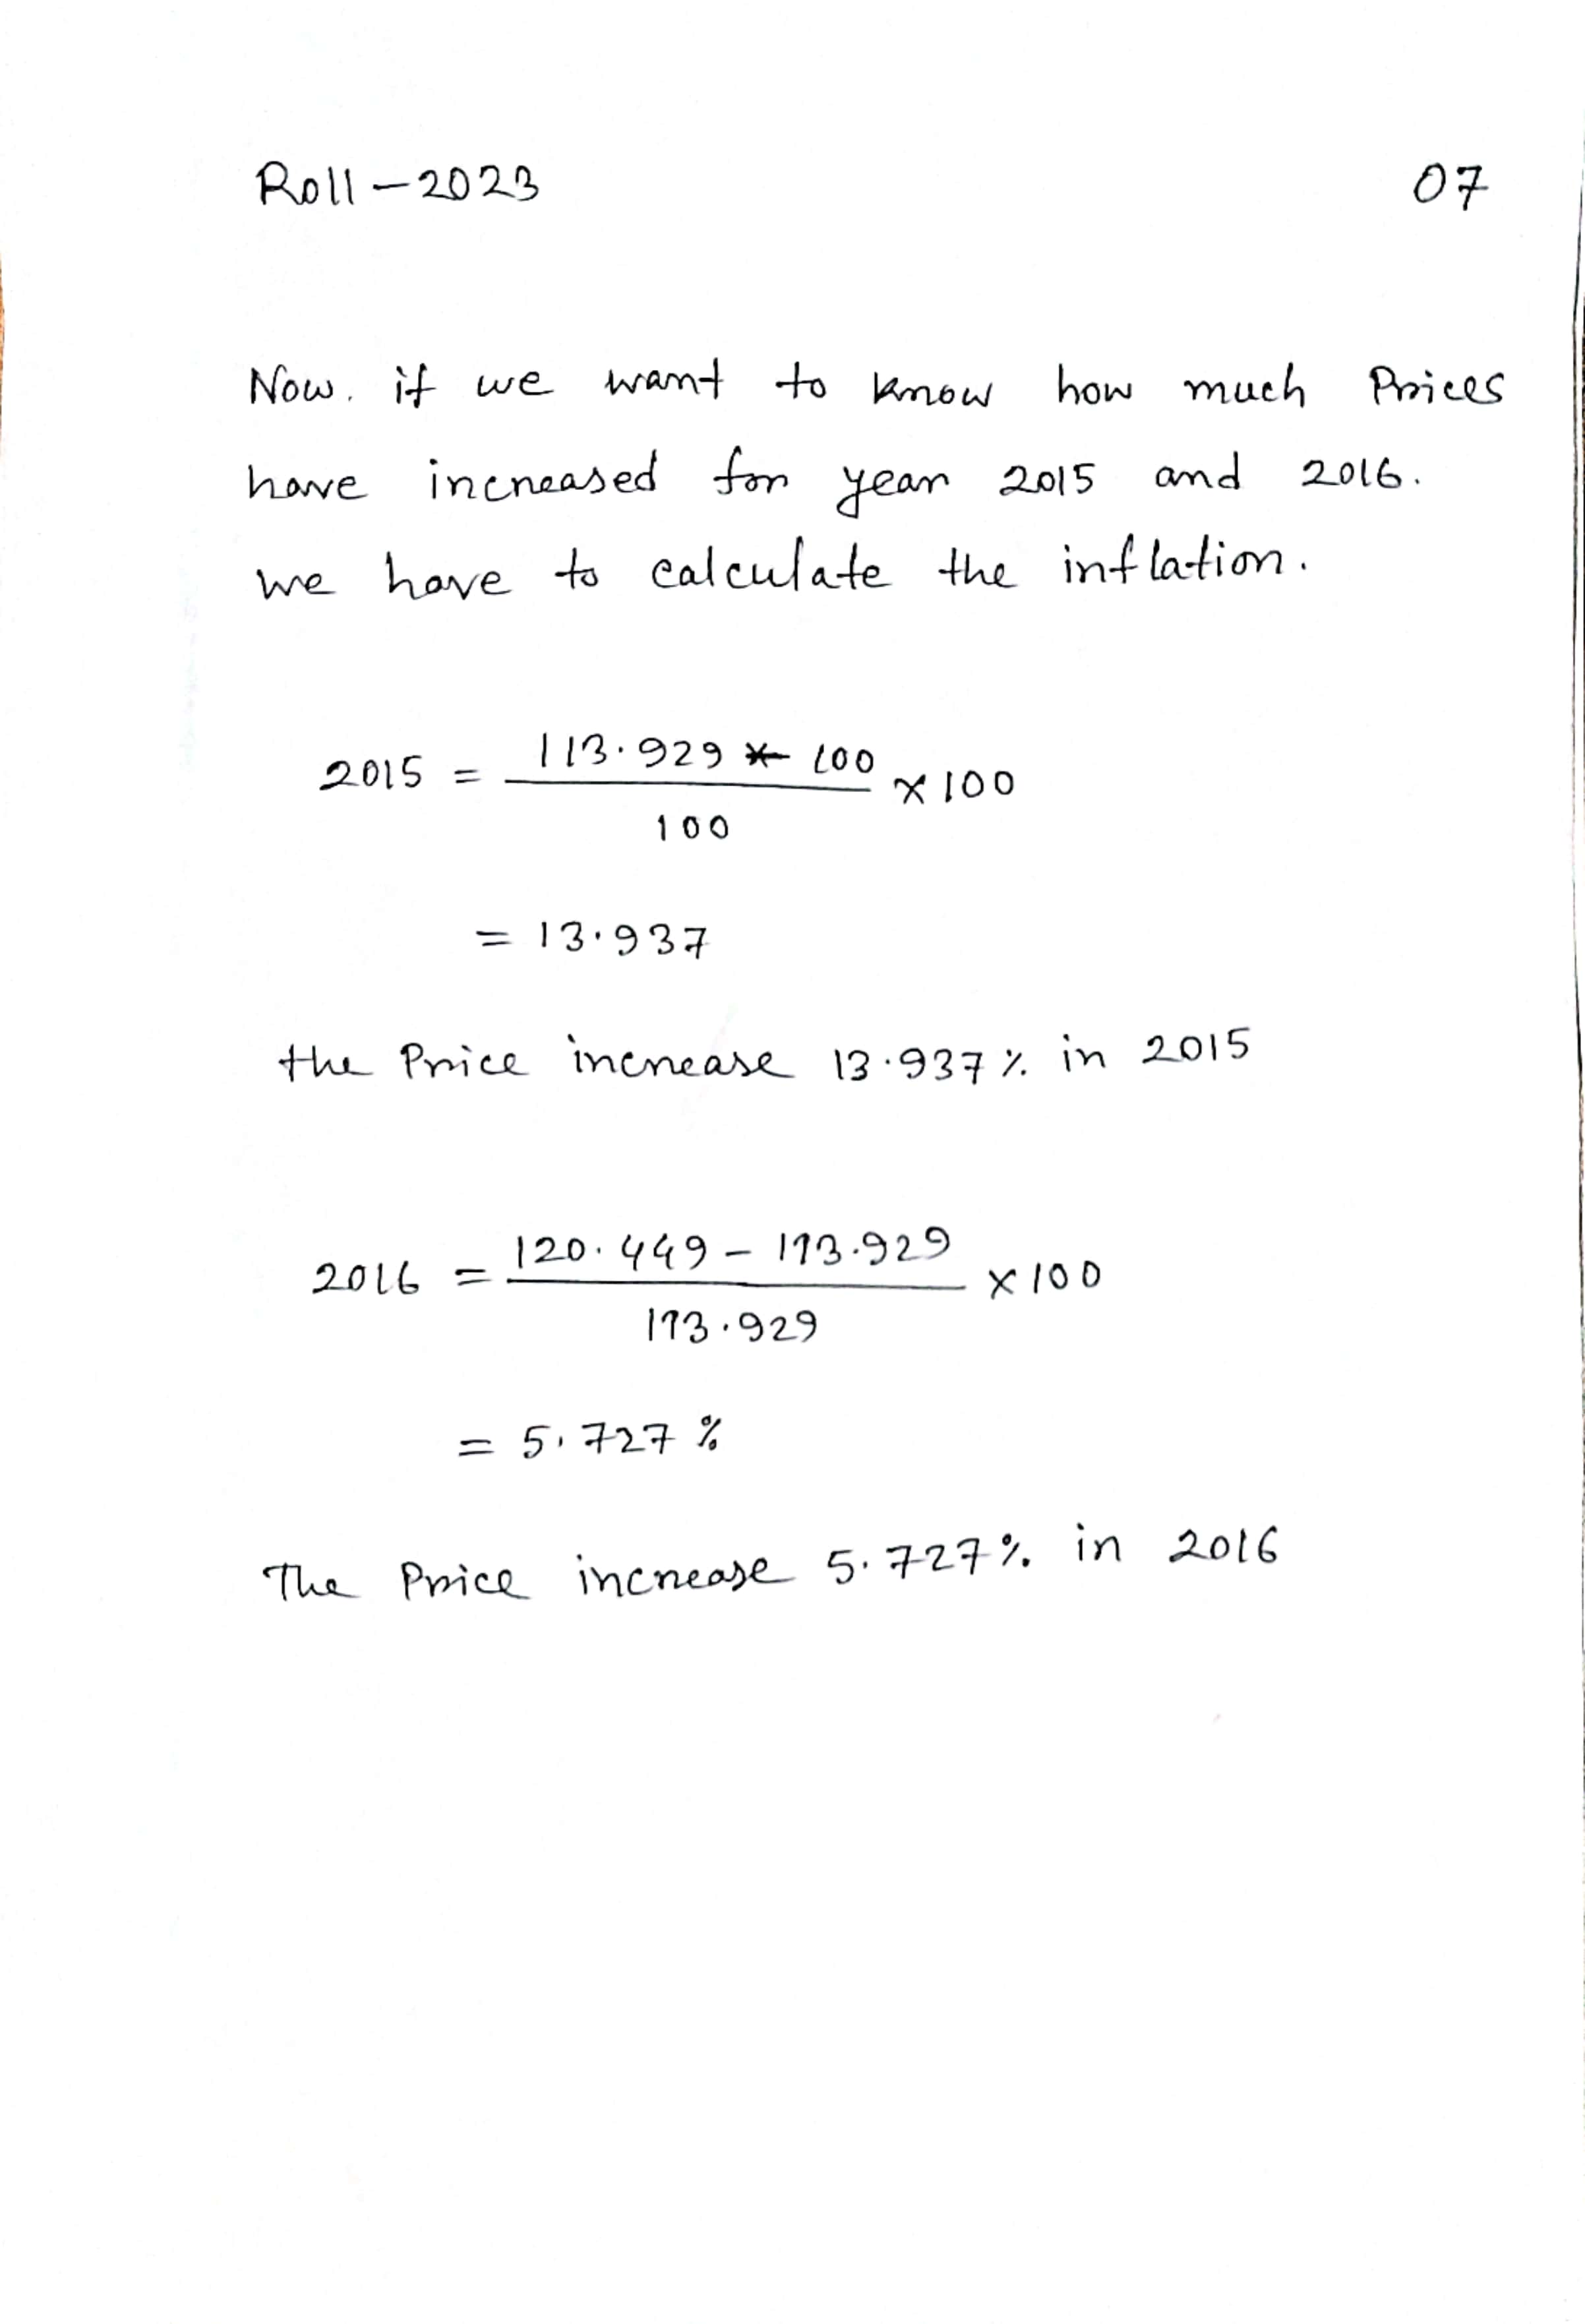 Roll - 2023
07
Now. if we want to know how much Prices
have increased for year 2015 and 2016.
we have to calculate the inflation.
2015 = (113.929 * 100) / 100 × 100
= 13.937
the Price increase 13.937 % in 2015
2016 = (120.449 - 113.929) / 113.929 × 100
= 5.727 %
The Price increase 5.727 % in 2016